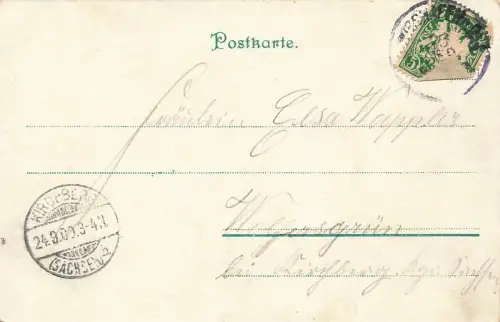 Postkarte.
Fräulein Elsa Wappler
Wolfersgrün
bei Kirchberg Kgr. Sachsen
KIRCHBERG
24.9.00.3-4.N
(SACHSEN)